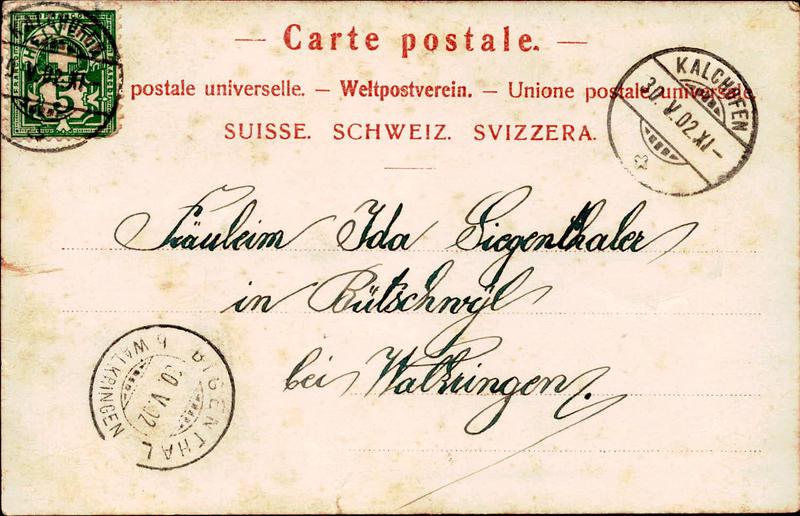 Carte postale.
postale universelle. — Weltpostverein. — Unione postale universale
SUISSE. SCHWEIZ. SVIZZERA.
KALCHOFEN
30. V. 02. XI—
5
Fräuleim Ida Siegenthaler
in Bütschwyl
bei Walkringen.
BIGENTHAL
b. WALKRINGEN
30. V. 02